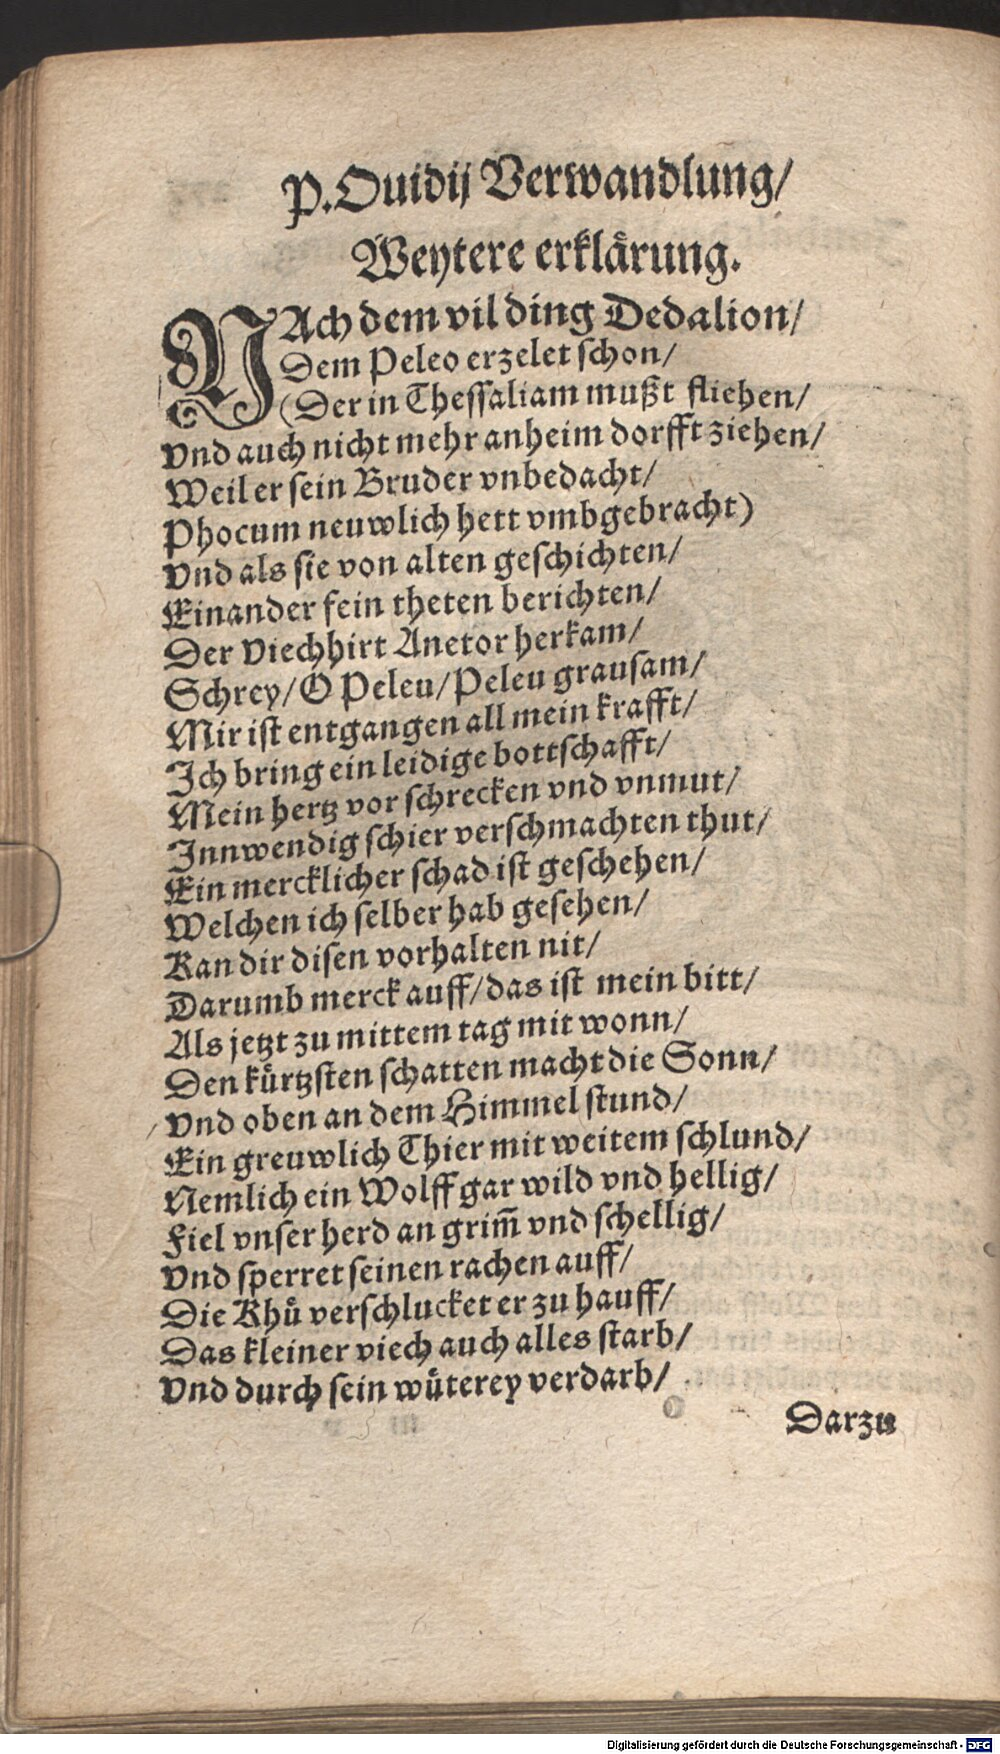 P. Ouidij Verwandlung/
Weytere erklaͤrung.
NAch dem vil ding Dedalion/
Dem Peleo erzelet schon/
(Der in Thessaliam mußt fliehen/
Vnd auch nicht mehr anheim dorfft ziehen/
Weil er sein Bruder vnbedacht/
Phocum neuwlich hett vmbgebracht)
Vnd als sie von alten geschichten/
Einander fein theten berichten/
Der Viechhirt Anetor herkam/
Schrey/ O Peleu/ Peleu grausam/
Mir ist entgangen all mein krafft/
Ich bring ein leidige bottschafft/
Mein hertz vor schrecken vnd vnmut/
Innwendig schier verschmachten thut/
Ein mercklicher schad ist geschehen/
Welchen ich selber hab gesehen/
Kan dir disen vorhalten nit/
Darumb merck auff/ das ist mein bitt/
Als jetzt zu mittem tag mit wonn/
Den kuͤrtzsten schatten macht die Sonn/
Vnd oben an dem Himmel stund/
Ein greuwlich Thier mit weitem schlund/
Nemlich ein Wolff gar wild vnd hellig/
Fiel vnser herd an grim̃ vnd schellig/
Vnd sperret seinen rachen auff/
Die Khuͤ verschlucket er zu hauff/
Das kleiner viech auch alles starb/
Vnd durch sein wuͤterey verdarb/
Darzu
Digitalisierung gefördert durch die Deutsche Forschungsgemeinschaft - DFG